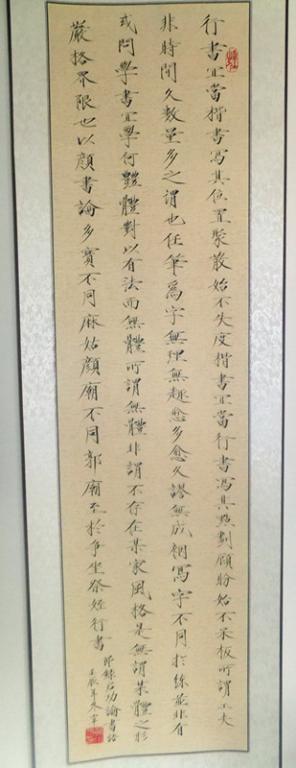 行書宜當楷書寫其位置聚散始不失度楷書宜當行書寫其點劃顧盼始不呆板所謂工夫
非時間久數量多之謂也任筆為字無理無趣愈多愈久謬無成
寫字不同於絲並非有
或問學書宜學何體對以有法而無體所謂無體非謂不存在某家風格是無謂某體之形
嚴格界限也以顏書論多寶不同麻姑顏廟不同郭廟至於爭坐祭姪行書
節錄啟功論書語
壬辰年冬